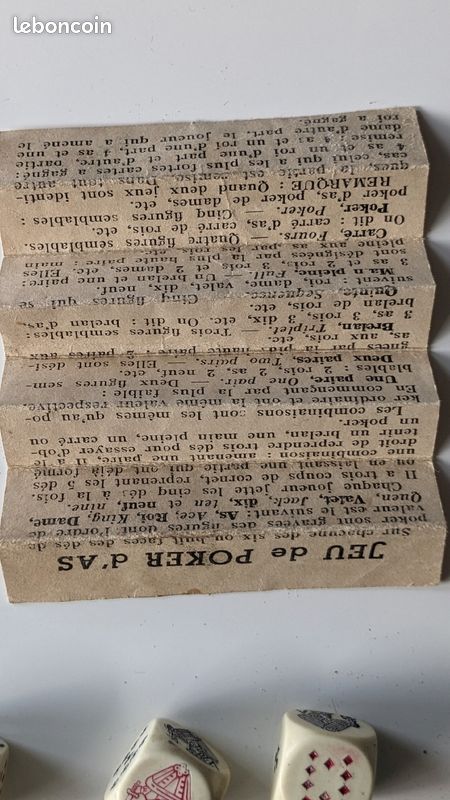 leboncoin
JEU de POKER d'AS
Sur chacune des six ou huit faces des dés de
poker sont gravées des figures dont l'ordre de
valeur est le suivant: As, Ace, Roi, King, Dame,
Quen, Valet, Jack, dix, ten et neuf, nine.
Chaque joueur jette les cinq dés à la fois.
Il a trois coups de cornet, reprenant les 5 dés
ou en laissant une partie qui ont déjà formé
une combinaison: amenant une paire, il a le
droit de reprendre trois dés pour essayer d'ob-
tenir un brelan, une main pleine, un carré ou
un poker.
Les combinaisons sont les mêmes qu'au po-
ker ordinaire et ont la même valeur respective.
En commençant par la plus faible :
Une paire, One pair. — Deux figures sem-
blables : 2 rois, 2 as, 2 neuf, etc.
Deux paires, Two pairs. Elles sont dési-
gnées par la plus haute paire : 2 paires aux
as, aux rois, etc.
Brelan, Triplet. — Trois figures semblables:
3 as, 3 rois, 3 dix, etc. On dit : brelan d'as,
brelan de rois, etc.
Quinte, Sequence. Cinq figures qui se
suivent : roi, dame, valet, dix, neuf.
Main pleine, Full. — Un brelan et une paire:
3 as et 2 rois, 3 rois et 2 dames, etc. Elles
sont désignées par la plus haute paire : main
pleine aux as, aux rois, etc.
Carré, Fours. Quatre figures semblables.
On dit : carré d'as, carré de rois, etc.
Poker, Poker. — Cinq figures semblables :
poker d'as, poker de dames, etc.
REMARQUE : Quand deux jeux sont identi-
ques, la partie est remise. Dans tout autre
cas, celui qui a les plus fortes cartes a gagné:
4 as et un roi d'une part et d'autre, partie
remise : 4 as et un roi d'une part, 4 as et une
dame d'autre part, le joueur qui a amené le
roi a gagné.